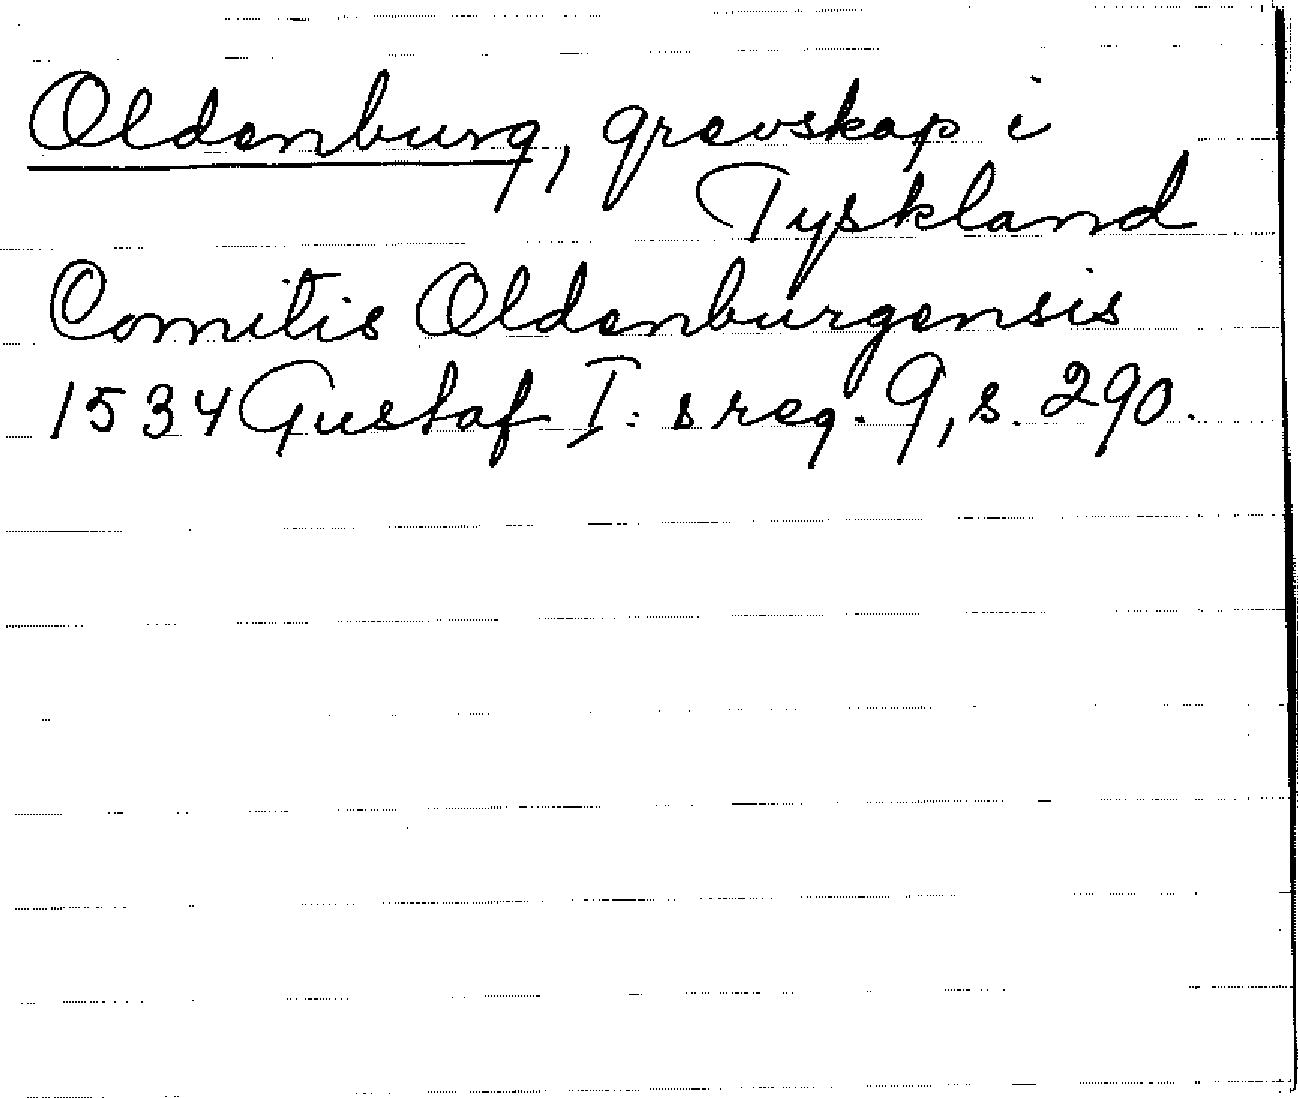 Oldenburg, grevskap i
Tyskland
Comitis Oldenburgensis
1534 Gustaf I:s reg. 9, s. 290.